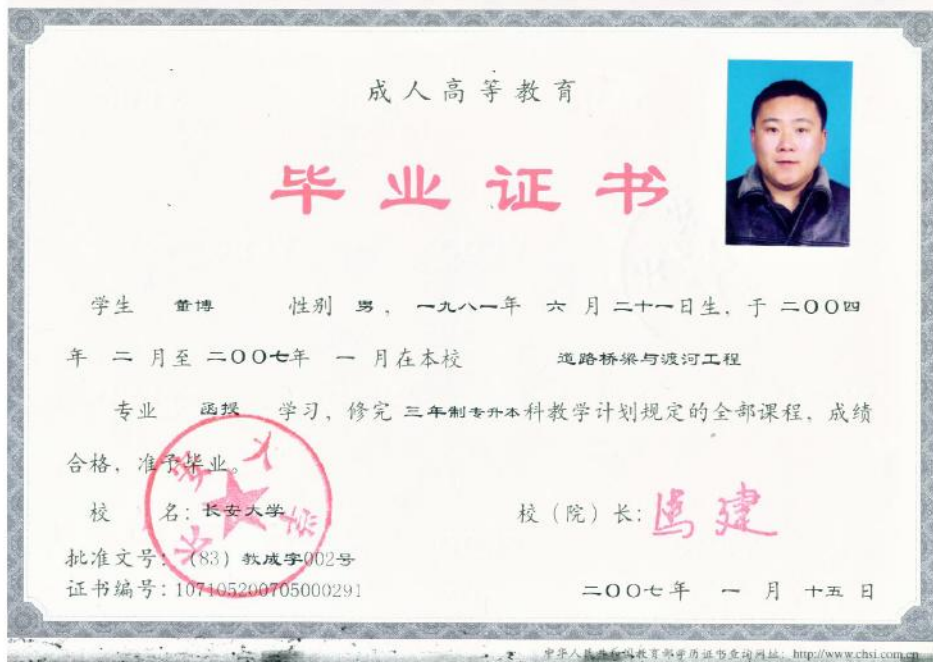 成人高等教育
毕业证书
学生 董博 性别 男，一九八一年 六 月 二十一日生，于 二〇〇四
年 二 月至 二〇〇七年 一 月在本校 道路桥梁与渡河工程
专业 函授 学习，修完 三年制专升本科教学计划规定的全部课程，成绩
合格，准予毕业。
校 名：长安大学 校（院）长：马建
批准文号：（83）教成字002号
证书编号：107105200705000291 二〇〇七年 一 月 十五 日
长安大学
中华人民共和国教育部学历证书查询网址：http://www.chsi.com.cn